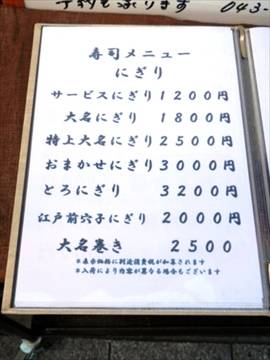 予約も承ります 043-
寿司メニュー
にぎり
サービスにぎり 1200円
大名にぎり 1800円
特上大名にぎり 2500円
おまかせにぎり 3000円
とろにぎり 3200円
江戸前穴子にぎり 2000円
大名巻き 2500
※表示価格に別途消費税が加算されます
※入荷により内容が異なる場合もございます